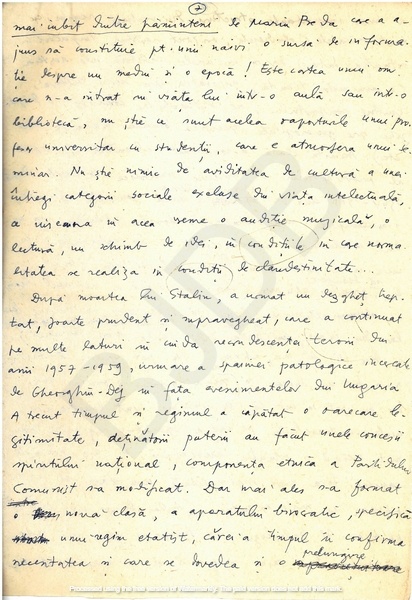 7
mai iubit dintre pământeni de Marin Preda care a a-
juns să constituie pt. unii naivi o sursă de informa-
ție despre un mediu și o epocă! Este cartea unui om
care n-a intrat în viața lui într-o aulă sau într-o
bibliotecă, nu știe ce sunt acelea raporturile unui pro-
fesor universitar cu studenții, care e atmosfera unui se-
minar. Nu știe nimic de aviditatea de cultură a unei
întregi categorii sociale excluse din viața intelectuală,
ce însemna în acea vreme o audiție muzicală, o
lectură, un schimb de idei, în condițiile în care norma-
litatea se realiza în condiții de clandestinitate...
După moartea lui Stalin, a urmat un dezgheț trep-
tat, foarte prudent și supravegheat, care a continuat
pe multe laturi în ciuda recrudescenței terorii din
anii 1957-1959, urmare a spaimei patologice încercate
de Gheorghiu-Dej în fața evenimentelor din Ungaria.
A trecut timpul și regimul a căpătat o oarecare le-
gitimitate, deținătorii puterii au făcut unele concesii
spiritului național, componența etnică a Partidului
Comunist s-a modificat. Dar mai ales s-a format
o nouă clasă, a aparatului birocratic, specifică
unui regim etatist, cărei a timpul îi confirma
necesitatea și care se dovedea și o prelungire